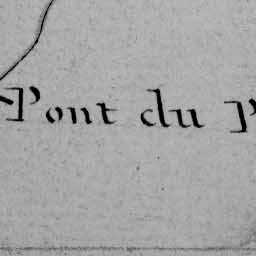 Pont du P